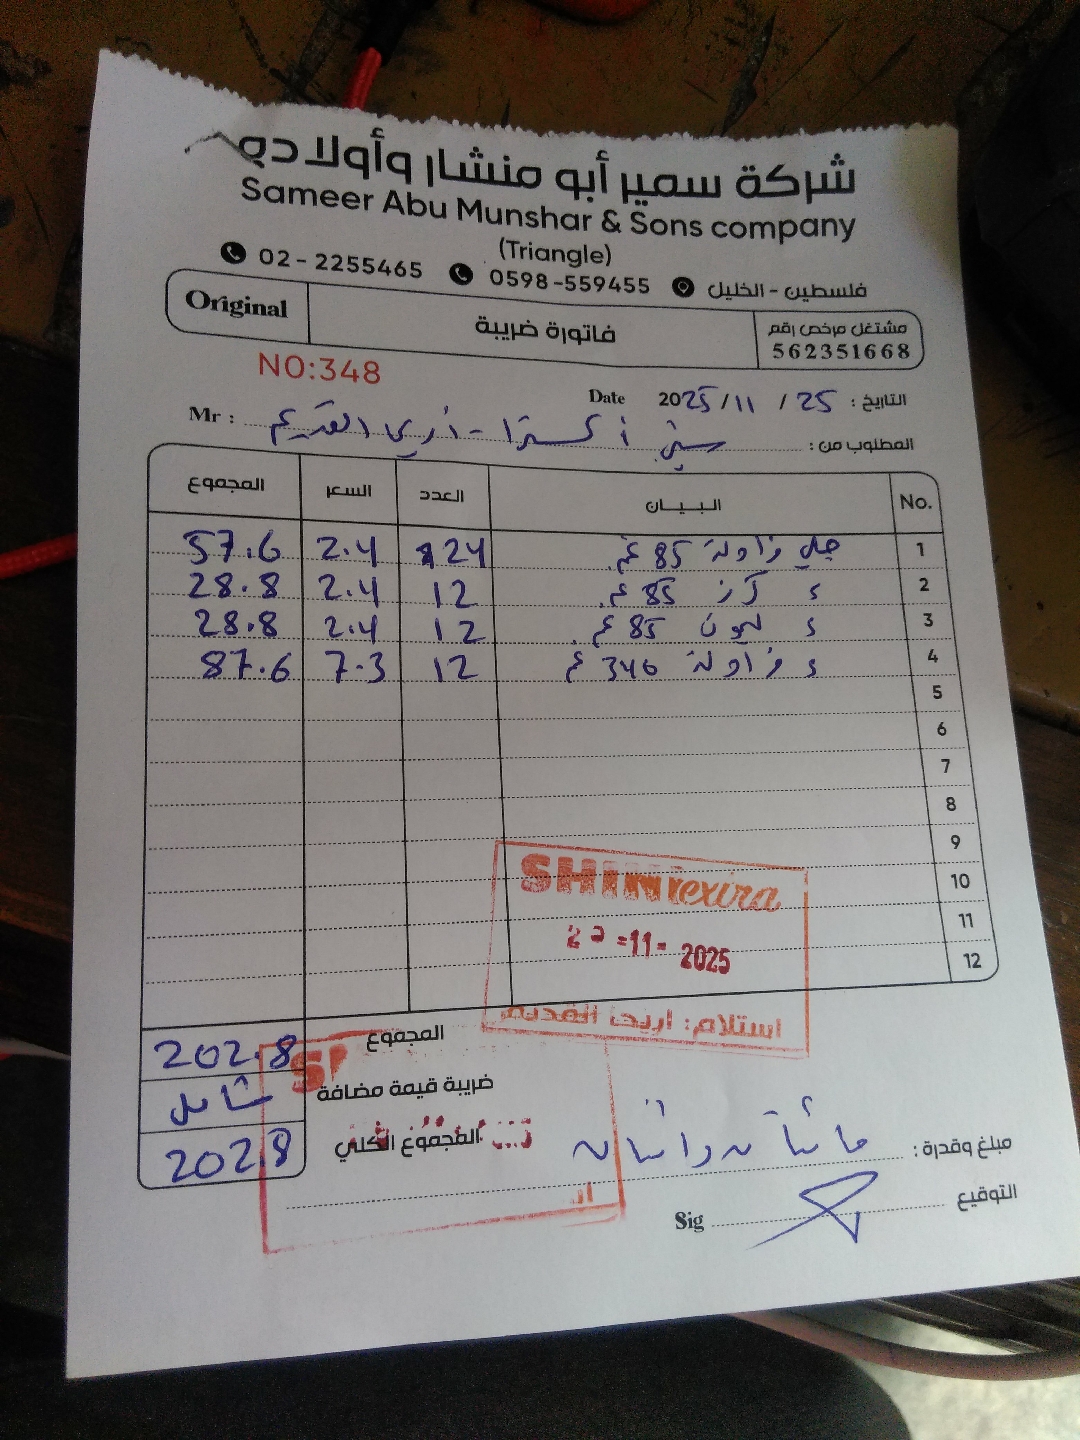 شركة سمير أبو منشار وأولاده
Sameer Abu Munshar & Sons company
(Triangle)
02 - 2255465 0598 -559455 فلسطين - الخليل
Original فاتورة ضريبة مشتغل مرخص رقم
562351668
NO:348
التاريخ : 25 / 11 / 2025 Date
المطلوب من : شني اكسترا - اريحا القديم Mr :
No. البـيـــان العدد السعر المجموع
1 جلي فراولة 85 غم 24 2.4 57.6
2 ء كرز 85 غم 12 2.4 28.8
3 ء ليمون 85 غم 12 2.4 28.8
4 ء فراولة 340 غم 12 7.3 87.6
5
6
7
8
9
10
11
12
SHINI extra
-11- 2025
استلام: اريحا القديمة
المجموع 202.8
ضريبة قيمة مضافة شامل
المجموع الكلي 202.8
مبلغ وقدرة :
التوقيع Sig